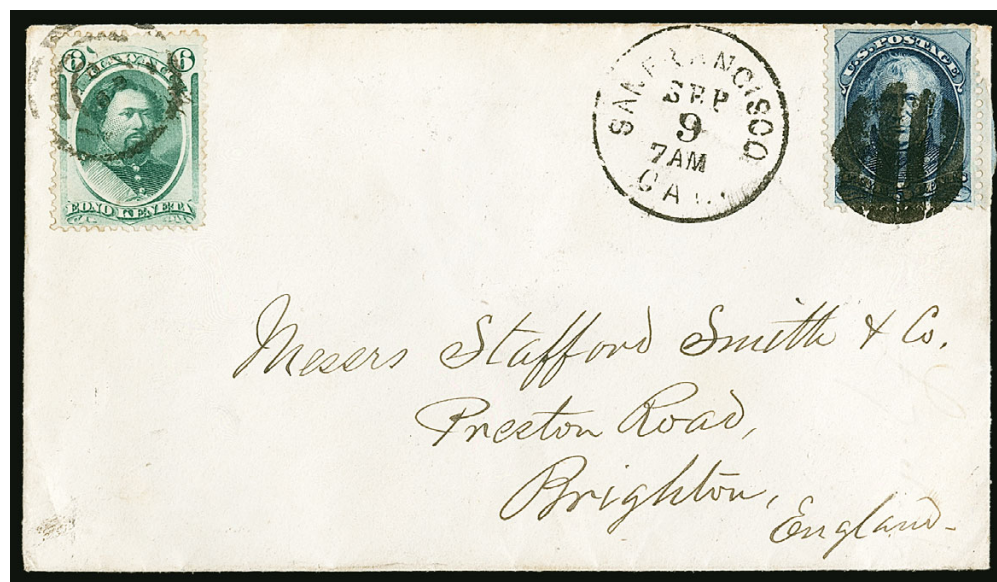 6 6
EONO KENETA
SAN FRANCISCO
SEP
9
7AM
CAL.
U.S. POSTAGE
Messrs Stafford Smith & Co.
Preston Road,
Brighton,
England.